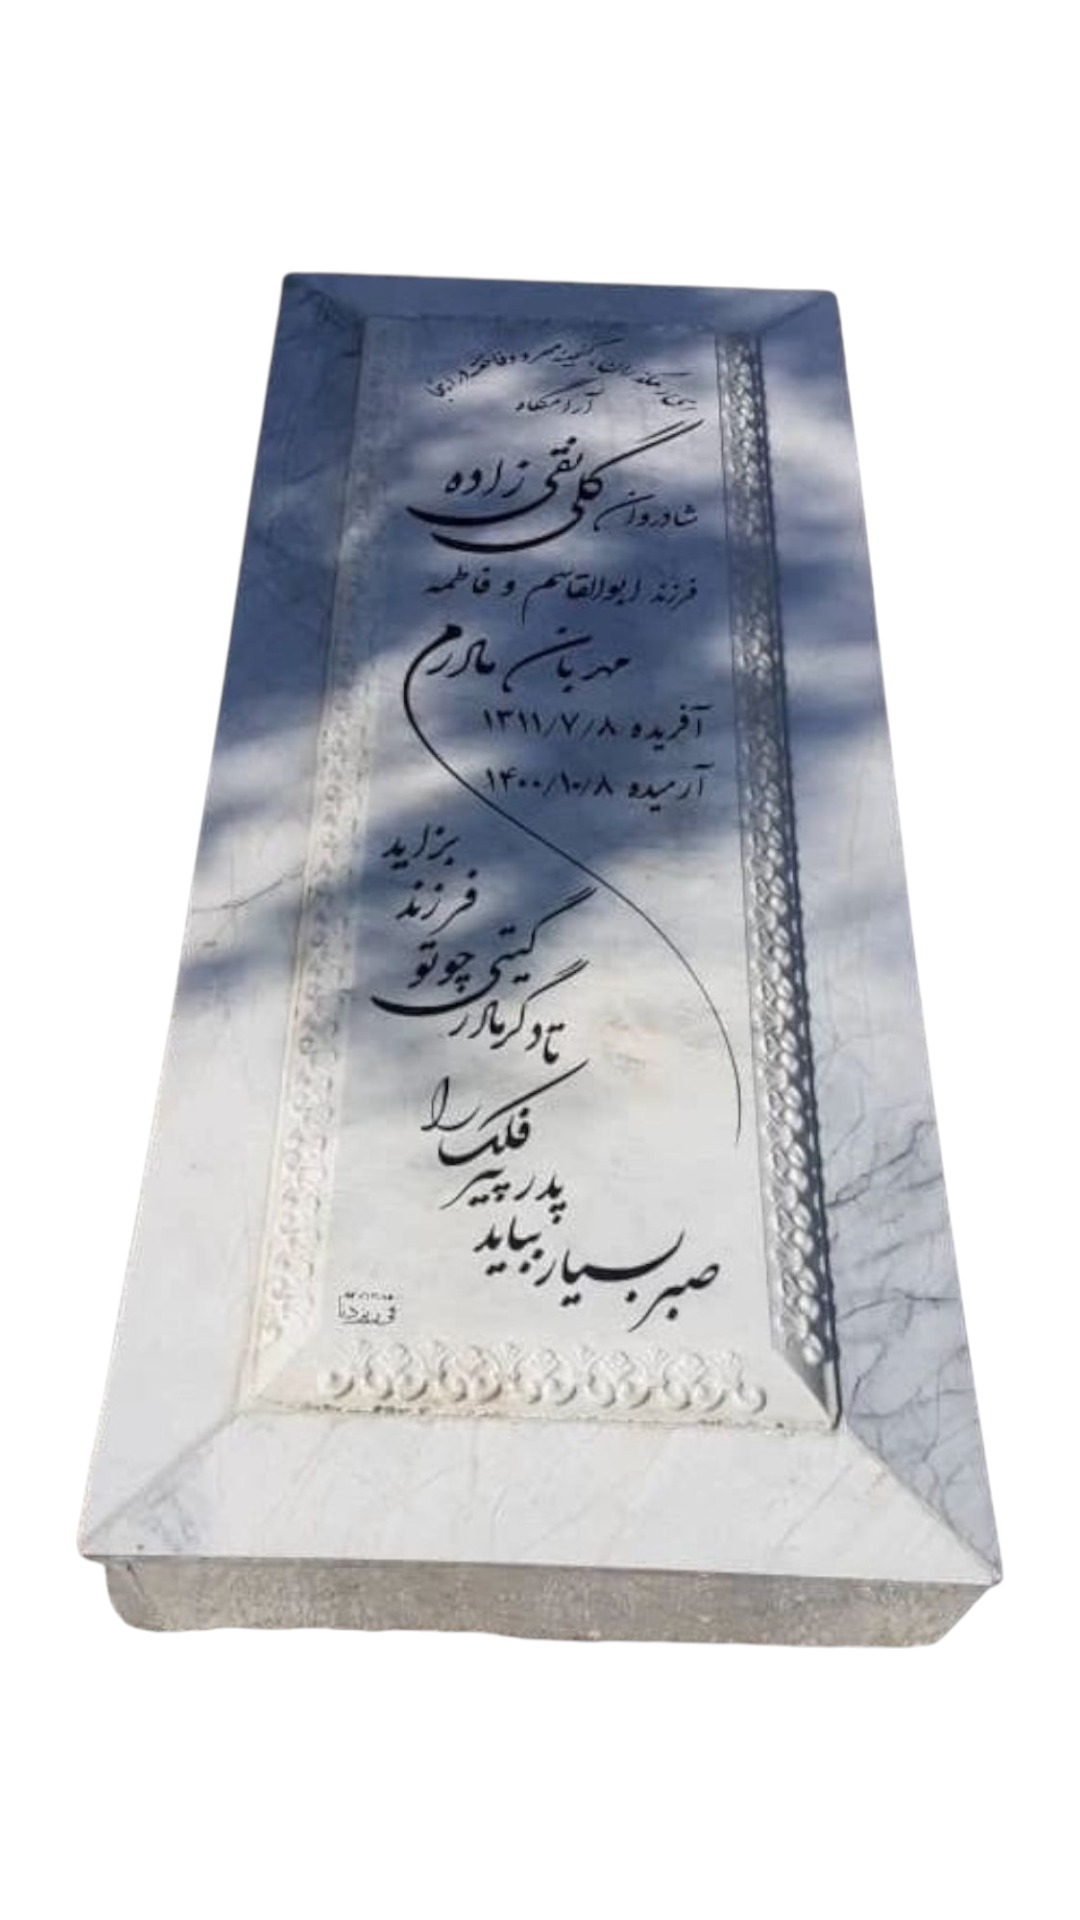 ای رهگذران گنجینه مهر و وفا خفته در اینجا
آرامگاه
شادروان گلی نقی زاده
فرزند ابوالقاسم و فاطمه
مهربان مادرم
آفریده ۱۳۱۱/۷/۸
آرمیده ۱۴۰۰/۱۰/۸
صبر بسیار بباید
پدر پیر
فلک را
تا دگر مادر
گیتی چو تو
فرزند
بزاید